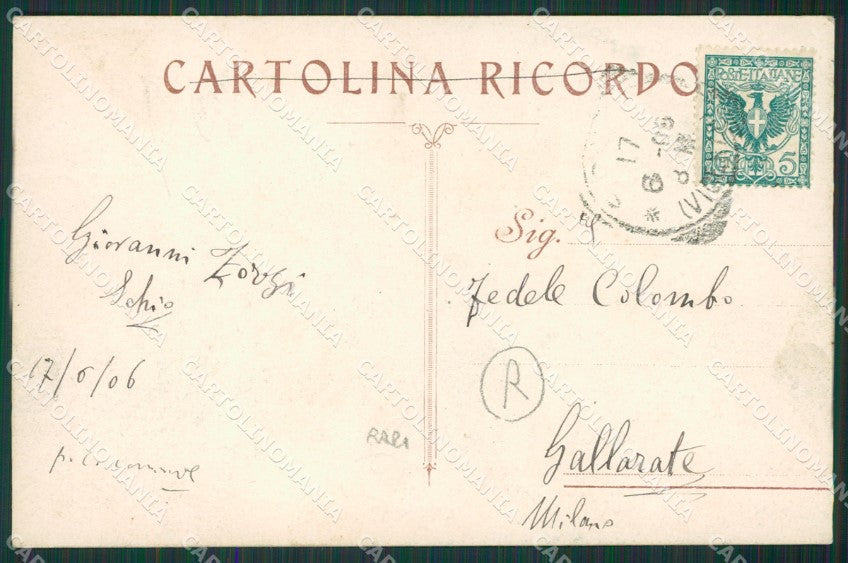 CARTOLINA RICORDO
POSTE ITALIANE
5
17
6-06
Sig.
Giovanni Zorzi
Schio
17/6/06
Fedele Colombo
R
RARA
Gallarate
Milano
CARTOLINOMANIA